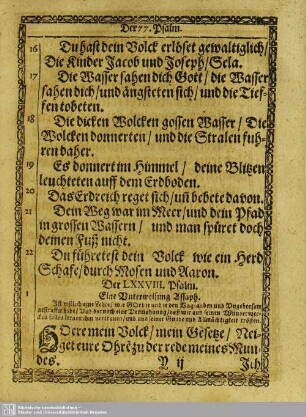 Der 77. Psalm.
16 Du hast dein Volck erlöset gewaltiglich /
Die Kinder Jacob und Joseph / Sela.
17 Die Wasser sahen dich Gott / die Wasser
sahen dich / und ängsteten sich / und die Tief-
fen tobeten.
18 Die dicken Wolcken gossen Wasser / Die
Wolcken donnerten / und die Stralen fuh-
ren daher.
19 Es donnert im Himmel / deine Blitzen
leuchteten auff dem Erdboden.
20 Das Erdreich reget sich / uñ bebete davon.
21 Dein Weg war im Meer / und dein Pfad
in grossen Wassern / und man spüret doch
deinen Fuß nicht.
Du führetest dein Volck wie ein Herd
Schafe / durch Mosen und Aaron.
Der LXXVIII. Psalm.
Eine Unterweisung Assaph.
1 HOere mein Volck / mein Gesetze / Nei-
get eure Ohrē zu der rede meines Mun-
des. Y ij Ich